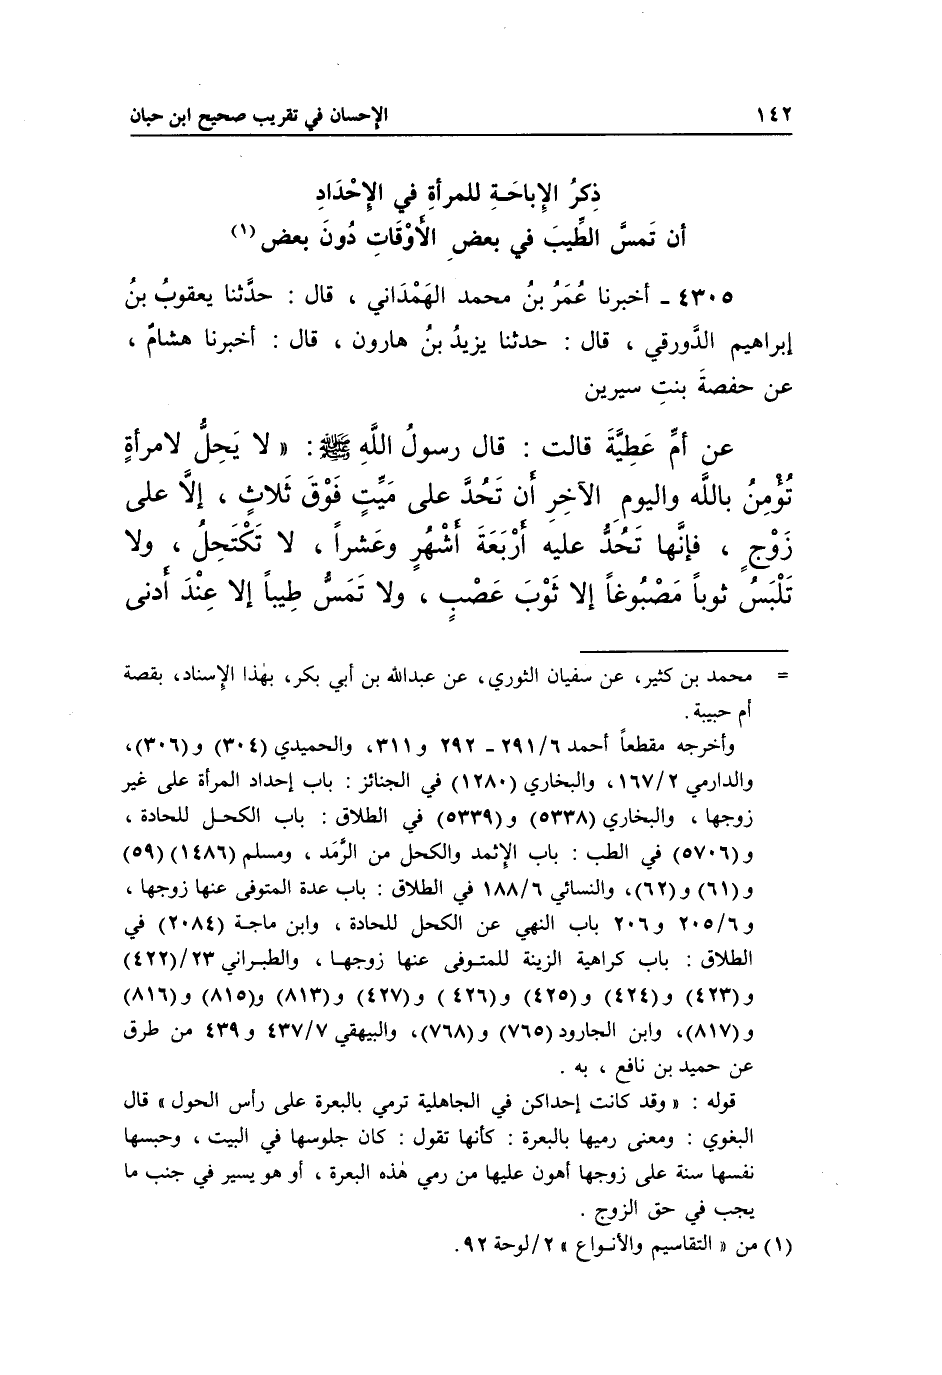 ١٤٢ الإحسان في تقريب صحيح ابن حبان
ذِكرُ الإِباحَةِ للمرأةِ في الإِحْدَادِ
أن تَمسَّ الطِّيبَ في بعضِ الأَوْقَاتِ دُونَ بعض(١)
٤٣٠٥ ـ أخبرنا عُمَرُ بنُ محمد الهَمْدَاني ، قال : حدَّثنا يعقوبُ بنُ
إبراهيم الدَّورقي ، قال : حدثنا يزيدُ بنُ هارون ، قال : أخبرنا هشامٌ ،
عن حفصةَ بنتِ سيرين
عن أمِّ عَطِيَّةَ قالت : قال رسولُ اللَّهِ ﷺ : « لا يَحِلُّ لامرأةٍ
تُؤْمِنُ باللَّه واليوم الآخرِ أَن تَحُدَّ على مَيِّتٍ فَوْقَ ثَلاثٍ ، إلَّا على
زَوْجٍ ، فإنَّها تَحُدُّ عليه أَرْبَعَةَ أَشْهُرٍ وعَشراً ، لا تَكْتَحِلُ ، ولا
تَلْبَسُ ثوباً مَصْبُوغاً إلا ثَوْبَ عَصْبٍ ، ولا تَمَسُّ طِيباً إلا عِنْدَ أَدنى
= محمد بن كثير، عن سفيان الثوري، عن عبدالله بن أبي بكر، بهٰذا الإِسناد، بقصة
أم حبيبة .
وأخرجه مقطعاً أحمد ٢٩١/٦ ـ ٢٩٢ و٣١١، والحميدي (٣٠٤) و(٣٠٦)،
والدارمي ١٦٧/٢، والبخاري (١٢٨٠) في الجنائز : باب إحداد المرأة على غير
زوجها ، والبخاري (٥٣٣٨) و(٥٣٣٩) في الطلاق : باب الكحل للحادة ،
و(٥٧٠٦) في الطب : باب الإثمد والكحل من الرَّمَد ، ومسلم (١٤٨٦) (٥٩)
و(٦١) و(٦٢)، والنسائي ١٨٨/٦ في الطلاق : باب عدة المتوفى عنها زوجها ،
و٢٠٥/٦ و٢٠٦ باب النهي عن الكحل للحادة ، وابن ماجة (٢٠٨٤) في
الطلاق : باب كراهية الزينة للمتوفى عنها زوجها ، والطبراني ٢٣/(٤٢٢)
و(٤٢٣) و(٤٢٤) و(٤٢٥) و(٤٢٦ ) و(٤٢٧) و(٨١٣) و(٨١٥) و(٨١٦)
و(٨١٧)، وابن الجارود (٧٦٥) و(٧٦٨)، والبيهقي ٤٣٧/٧ و٤٣٩ من طرق
عن حميد بن نافع ، به .
قوله : « وقد كانت إحداكن في الجاهلية ترمي بالبعرة على رأس الحول » قال
البغوي : ومعنى رميها بالبعرة : كأنها تقول : كان جلوسها في البيت ، وحبسها
نفسها سنة على زوجها أهون عليها من رمي هٰذه البعرة ، أو هو يسير في جنب ما
يجب في حق الزوج .
(١) من « التقاسيم والأنواع » ٢/لوحة ٩٢.